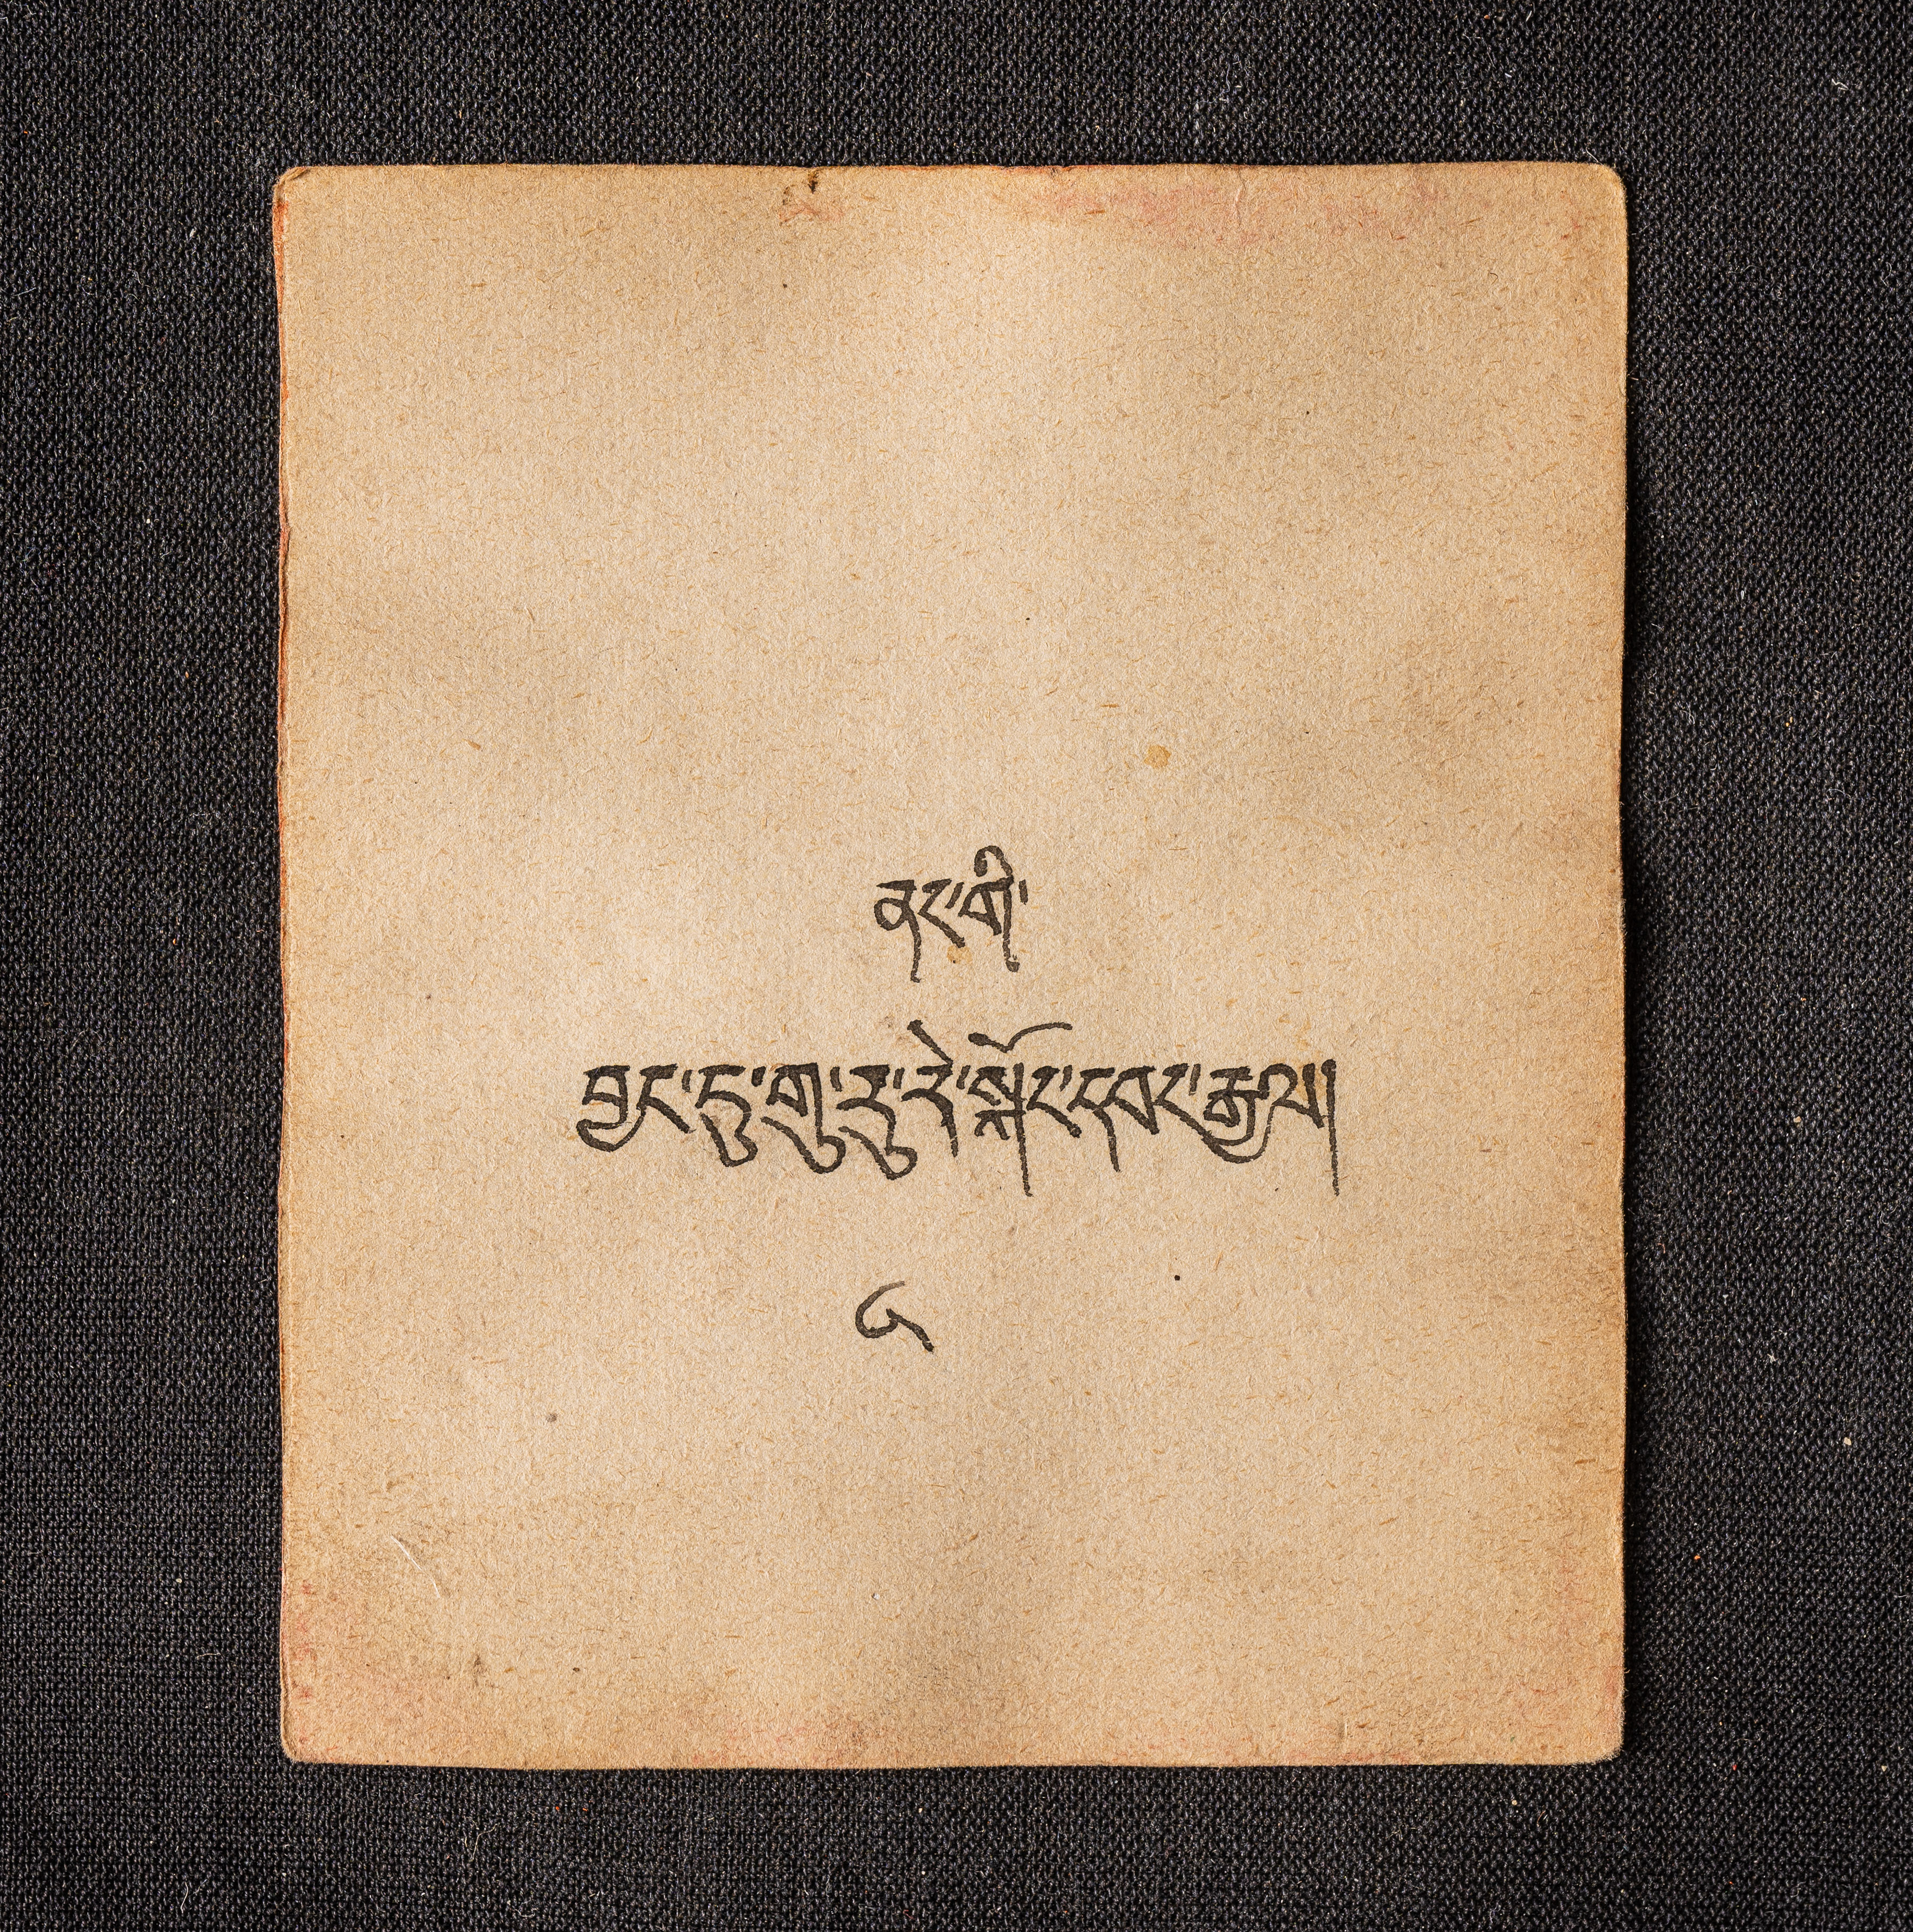 ནང་གི་
བྱང་དུ་གུ་རུ་རེ་སྐོང་དབང་རྒྱལ།
༦